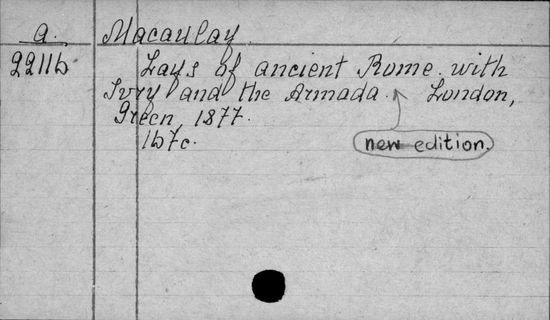 a. Macaulay.
2211b Lays of ancient Rome. with
Ivry and the Armada. London,
Green, 1877.
167c.
new edition.